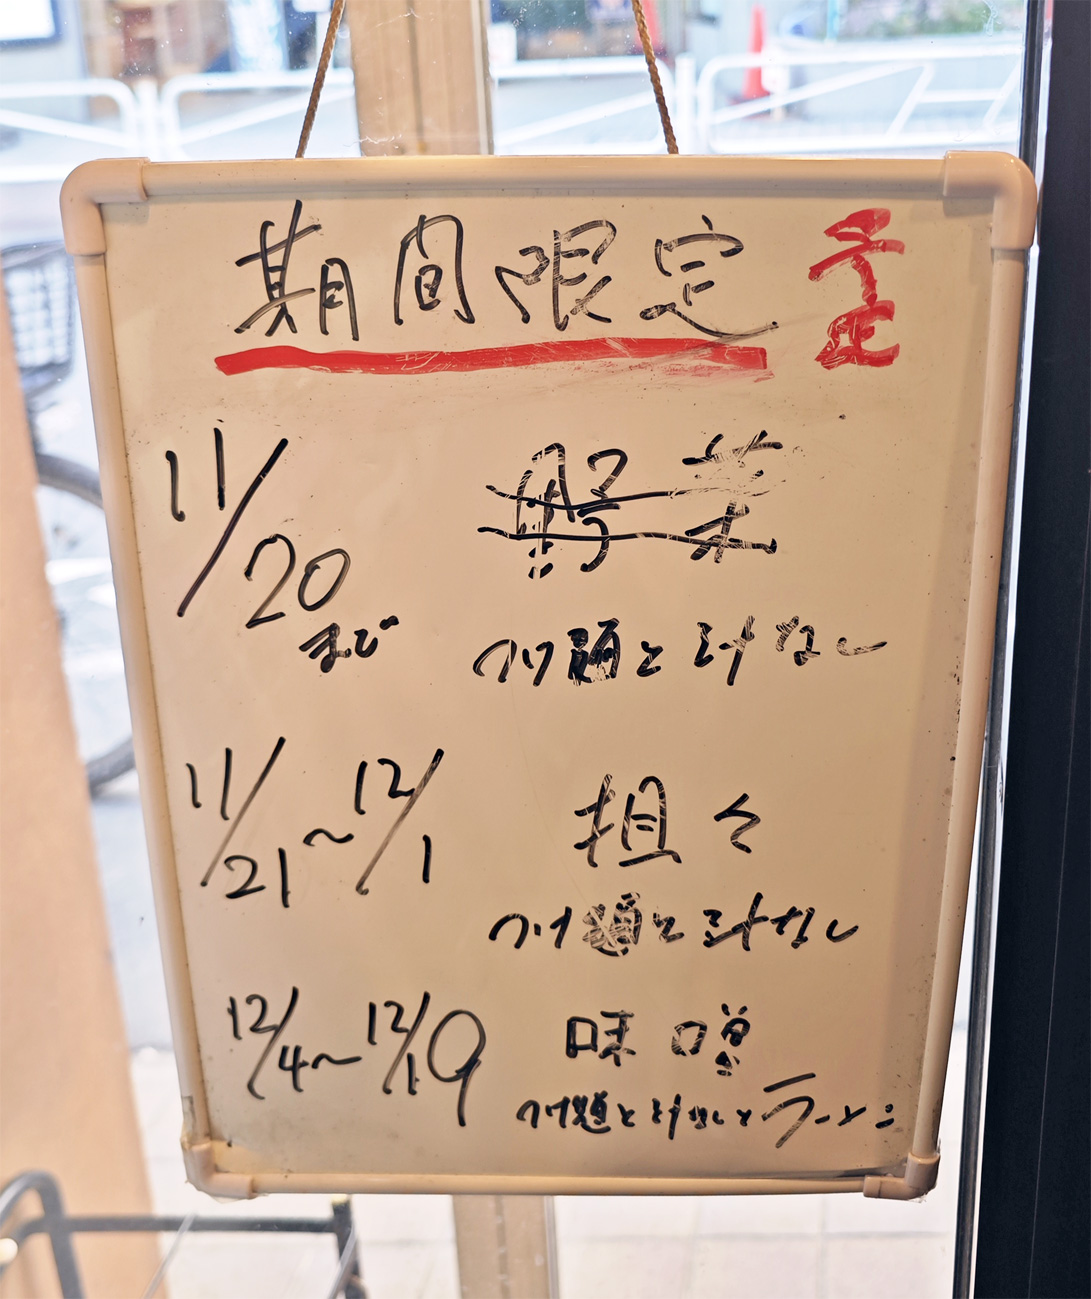 期間限定 予定
11/20
まで
野菜
つけ麺と汁なし
11/21~12/1
担々
つけ麺と汁なし
12/4~12/19
味噌
つけ麺と汁なしとラーメン